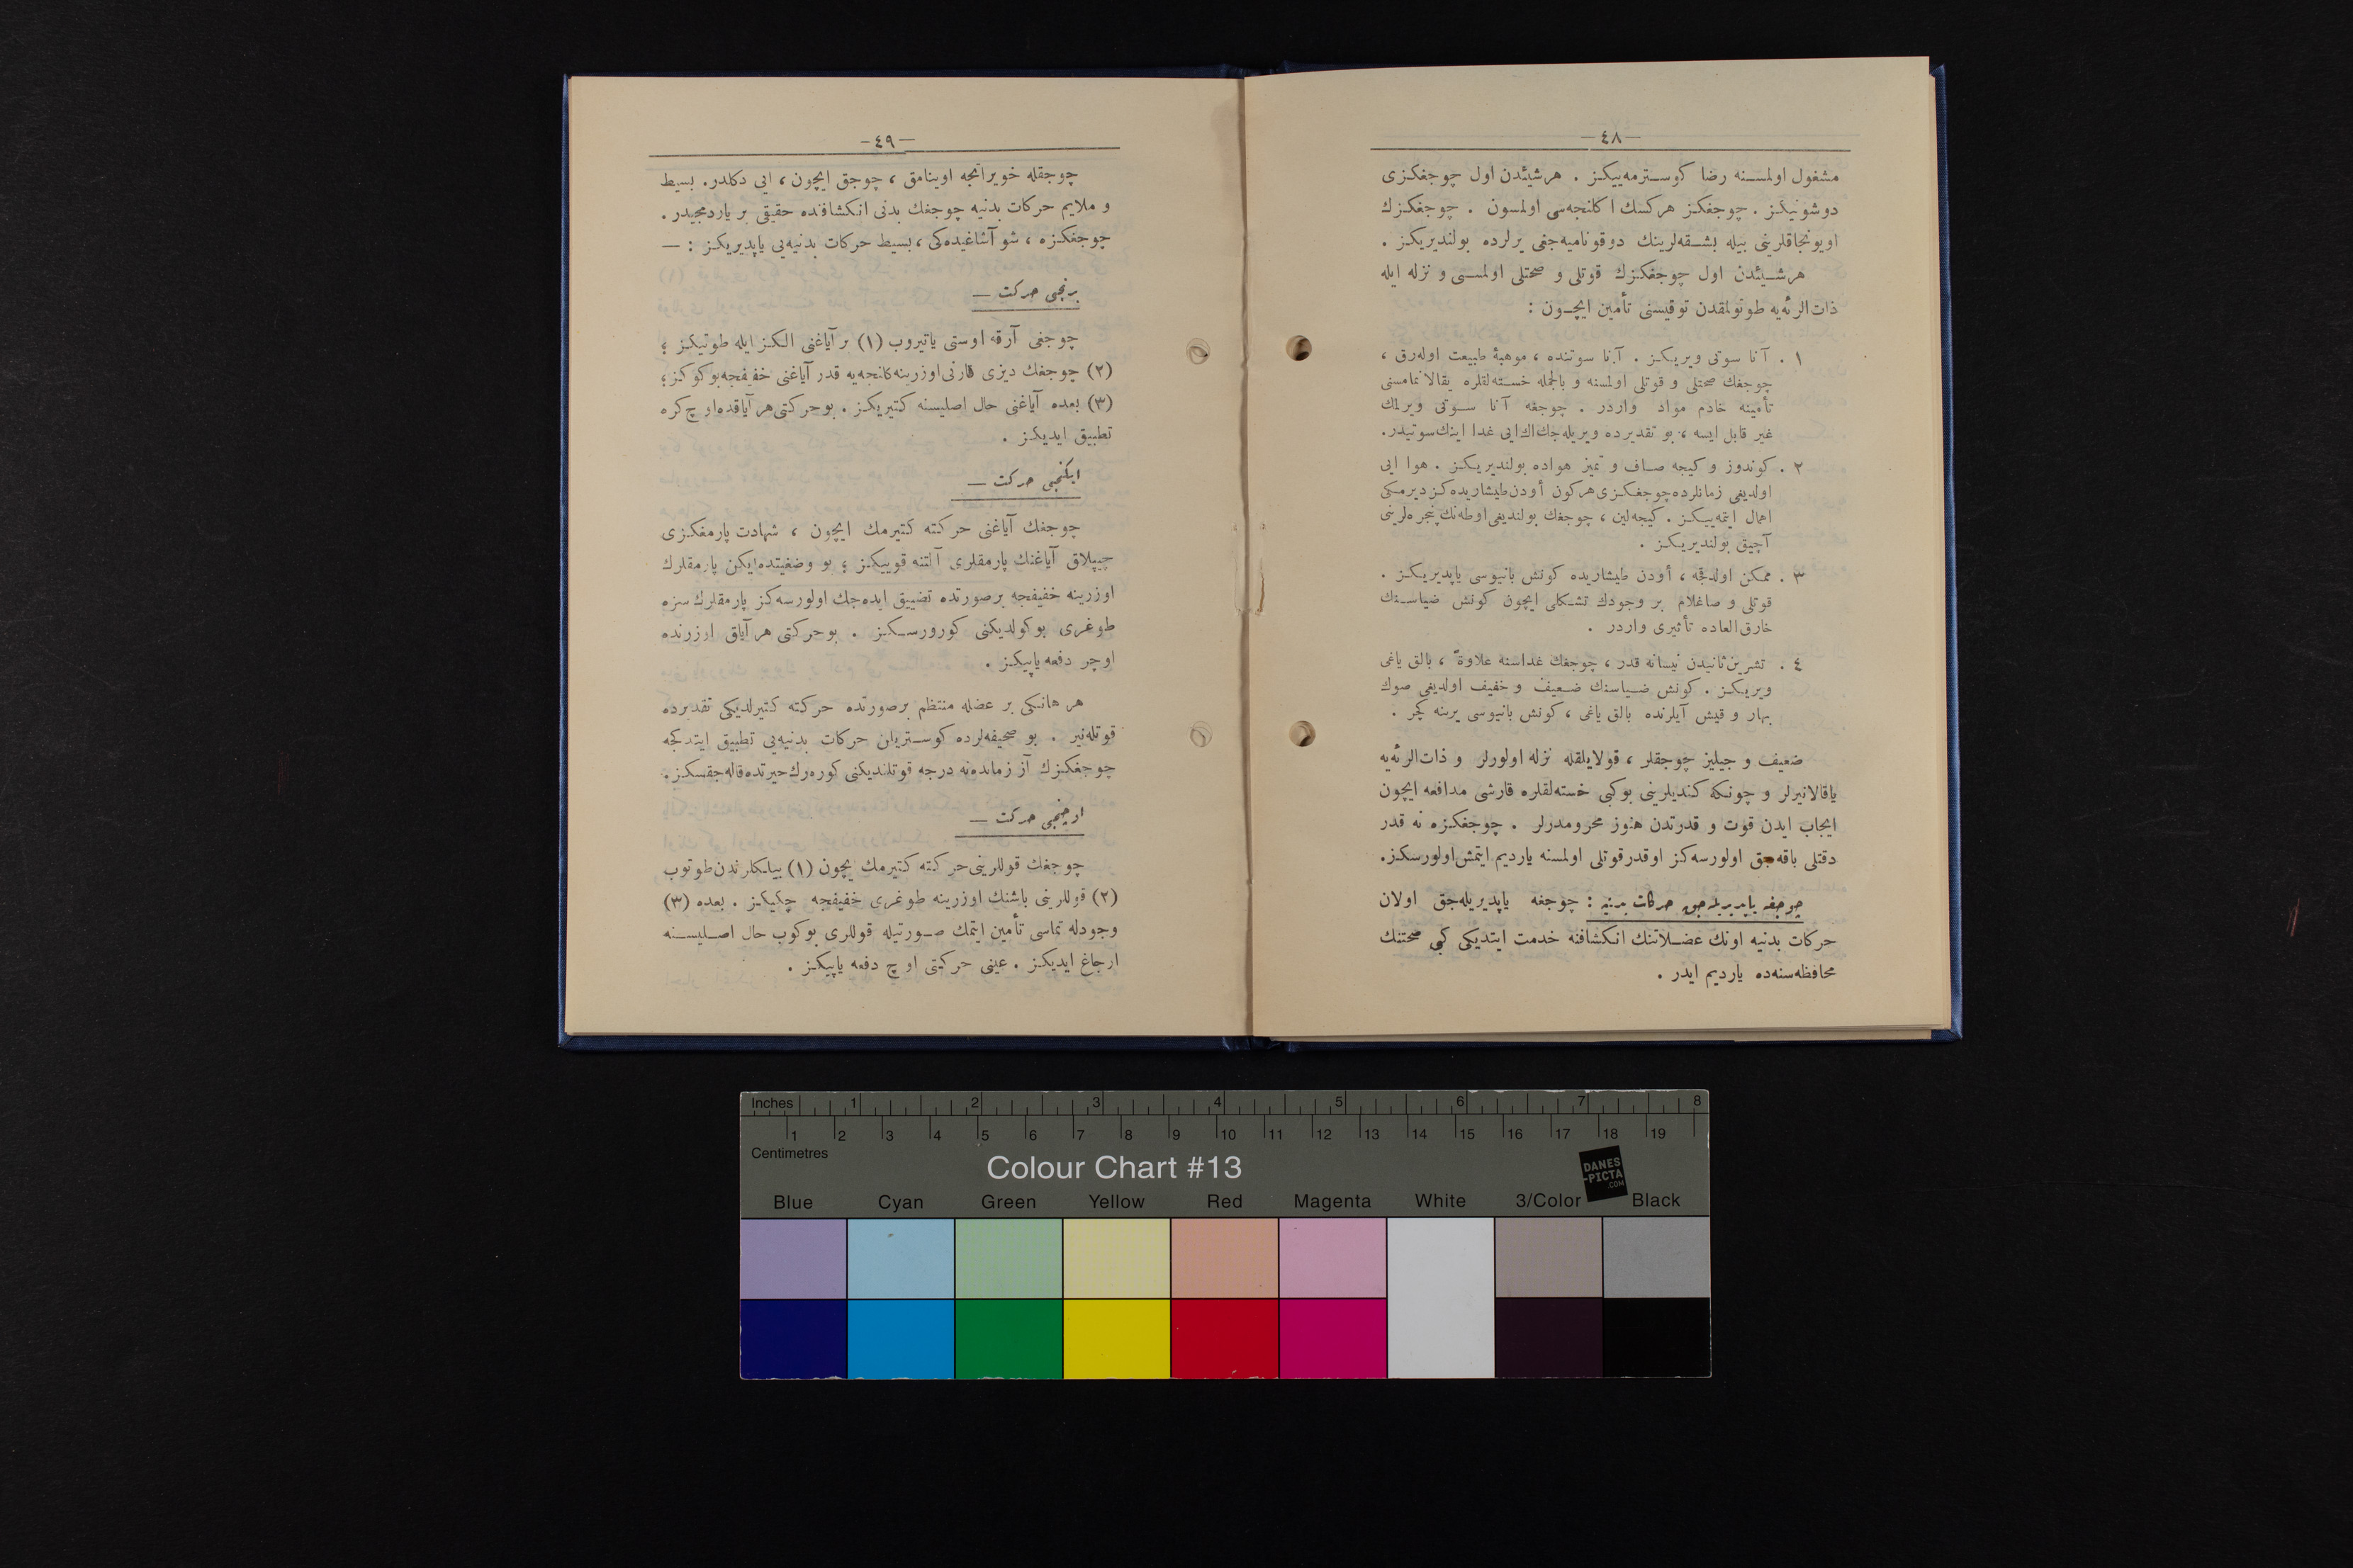 —٤٨—
مشغول اولمسنه رضا كوسترمه‌ييكز . هرشيئدن اول چوجغكزی
دوشونيكز . چوجغكز هركسك اكلنجه‌سی اولمسون . چوجغكزك
اويونجاقلرينی بيله بشقه‌لرينك دوقوناميه‌جغی يرلرده بولنديريكز .
هرشيئدن اول چوجغكزك قوتلی و صحتلی اولمسی و نزله ايله
ذات‌الرئه‌يه طوتولمقدن توقيسنی تأمين ايچون :
١ . آنا سوتی ويريكز . آنا سوتنده ، موهبهٔ طبيعت اوله‌رق ،
چوجغك صحتلی و قوتلی اولمسنه و بالجمله خسته‌لقلره يقالانمامسنی
تأمينه خادم مواد واردر . چوجغه آنا سوتی ويرلمك
غير قابل ايسه ، بو تقديرده ويريله‌جك اك ايی غدا اينك سوتيدر.
٢ . كوندوز و كيجه صاف و تميز هواده بولنديريكز . هوا ايی
اولديغی زمانلرده چوجغكزی هركون أودن طيشاريده كزديرمكی
اهمال ايتمه‌ييكز . كيجه‌لين ، چوجغك بولنديغی اوطه‌نك پنجره‌لرينی
آچيق بولنديريكز .
٣ . ممكن اولدقجه ، أودن طيشاريده كونش بانيوسی ياپديريكز .
قوتلی و صاغلام بر وجودك تشكلی ايچون كونش ضياسنك
خارق‌العاده تأثيری واردر .
٤ . تشرين‌ثانيدن نيسانه قدر ، چوجغك غداسنه علاوةً ، بالق ياغی
ويريكز . كونش ضياسنك ضعيف و خفيف اولديغی صوك
بهار و قيش آيلرنده بالق ياغی ، كونش بانيوسی يرينه كچر .
ضعيف و جيليز چوجقلر ، قولايلقله نزله اولورلر و ذات‌الرئه‌يه
ياقالانيرلر و چونكه كنديلرينی بوكبی خسته‌لقلره قارشی مدافعه ايچون
ايجاب ايدن قوت و قدرتدن هنوز محرومدرلر . چوجغكزه نه قدر
دقتلی باقه‌جق اولورسه‌كز اوقدر قوتلی اولمسنه يارديم ايتمش اولورسكز.
چوجغه ياپديريله‌جق حركات بدنيه : چوجغه ياپديريله‌جق اولان
حركات بدنيه اونك عضلاتنك انكشافنه خدمت ايتديكی كبی صحتنك
محافظه‌سنه‌ده يارديم ايدر .
—٤٩—
چوجقله خويراتجه اوينامق ، چوجق ايچون ، ايی دكلدر. بسيط
و ملايم حركات بدنيه چوجغك بدنی انكشافنده حقيقی بر ياردمجيدر .
چوجغكزه ، شو آشاغيده‌كی ، بسيط حركات بدنيه‌يی ياپديريكز : —
برنجی حركت —
چوجغی آرقه اوستی ياتيروب (١) بر آياغنی الكز ايله طوتيكز ؛
(٢) چوجغك ديزی قارنی اوزرينه كلنجه‌يه قدر آياغنی خفيفجه بوكوكز ؛
(٣) بعده آياغنی حال اصليسنه كتيريكز . بو حركتی هر آياقده اوچ كره
تطبيق ايديكز .
ايكنجی حركت —
چوجغك آياغنی حركته كتيرمك ايچون ، شهادت پارمغكزی
چيپلاق آياغنك پارمقلری آلتنه قوييكز ؛ بو وضعيتده ايكن پارمقلرك
اوزرينه خفيفجه برصورتده تضييق ايده‌جك اولورسه‌كز پارمقلرك سزه
طوغری بوكولديكنی كورورسكز . بو حركتی هر آياق اوزرنده
اوچر دفعه ياپيكز .
هر هانكی بر عضله منتظم برصورتده حركته كتيرلديكی تقديرده
قوتله‌نير . بو صحيفه‌لرده كوستريلن حركات بدنيه‌يی تطبيق ايتدكجه
چوجغكزك آز زمانده نه درجه قوتلنديكنی كوره‌رك حيرتده قاله‌جقسكز .
اوچنجی حركت —
چوجغك قوللرينی حركته كتيرمك يچون (١) بيلكلرندن طوتوب
(٢) قوللرينی باشنك اوزرينه طوغری خفيفجه چكيكز . بعده (٣)
وجودله تماسی تأمين ايتمك صورتيله قوللری بوكوب حال اصليسنه
ارجاع ايديكز . عينی حركتی اوچ دفعه ياپيكز .
Inches 1 2 3 4 5 6 7 8
1 2 3 4 5 6 7 8 9 10 11 12 13 14 15 16 17 18 19
Centimetres
Colour Chart #13
DANES
-PICTA
.COM
Blue Cyan Green Yellow Red Magenta White 3/Color Black